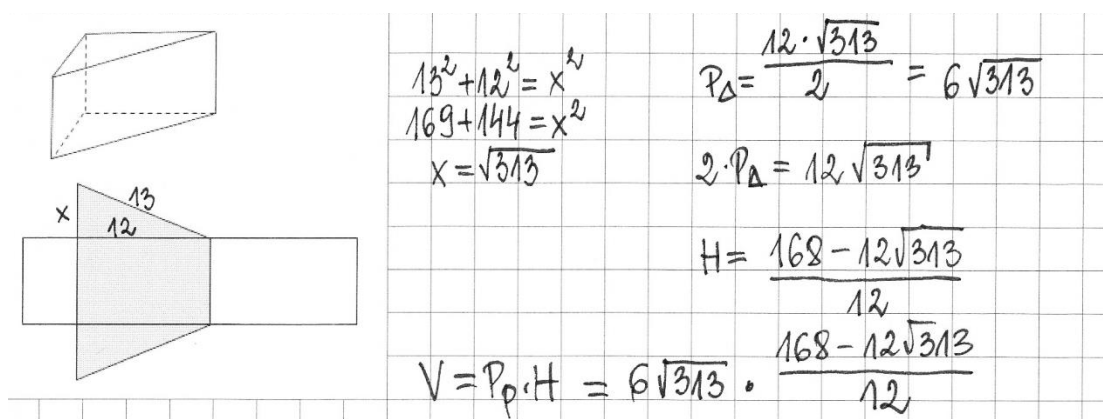 x 13
12
13² + 12² = x²
169 + 144 = x²
x = √313
P_Δ = 12 · √313 / 2 = 6√313
2 · P_Δ = 12√313
H = 168 − 12√313 / 12
V = P_p · H = 6√313 · 168 − 12√313 / 12